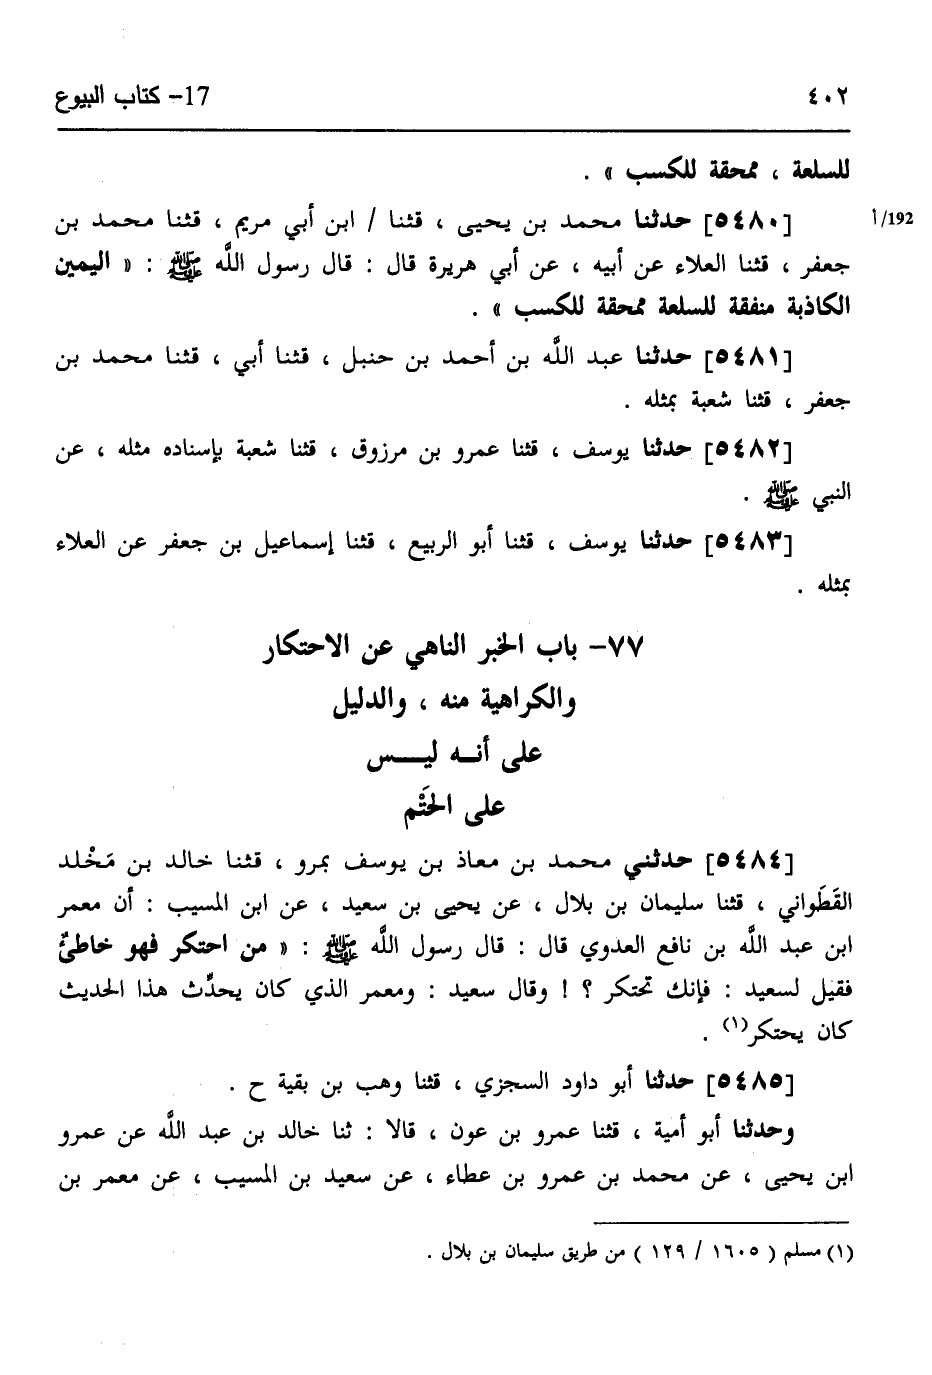 ٤٠٢
17- كتاب البيوع
للسلعة ، ممحقة للكسب » .
[٥٤٨٠] حدثنا محمد بن يحيى ، قثنا / ابن أبي مريم ، قثنا محمد بن
192/أ
جعفر ، قثنا العلاء عن أبيه ، عن أبي هريرة قال : قال رسول اللَّه ﷺ : « اليمين
الكاذبة منفقة للسلعة ممحقة للكسب » .
[٥٤٨١] حدثنا عبد اللَّه بن أحمد بن حنبل ، قثنا أبي ، قثنا محمد بن
جعفر ، قثنا شعبة بمثله .
[٥٤٨٢] حدثنا يوسف ، قثنا عمرو بن مرزوق ، قثنا شعبة بإسناده مثله ، عن
النبي ﷺ .
[٥٤٨٣] حدثنا يوسف ، قثنا أبو الربيع ، قثنا إسماعيل بن جعفر عن العلاء
بمثله .
٧٧- باب الخبر الناهي عن الاحتكار
والكراهية منه ، والدليل
على أنـه ليـس
على الحَتْم
[٥٤٨٤] حدثني محمد بن معاذ بن يوسف بمرو ، قثنا خالد بن مَخْلد
القَطَواني ، قثنا سليمان بن بلال ، عن يحيى بن سعيد ، عن ابن المسيب : أن معمر
ابن عبد اللَّه بن نافع العدوي قال : قال رسول اللَّه ﷺ : « من احتكر فهو خاطئٌ
فقيل لسعيد : فإنك تحتكر ؟ ! وقال سعيد : ومعمر الذي كان يحدِّث هذا الحديث
كان يحتكر(١) .
[٥٤٨٥] حدثنا أبو داود السجزي ، قثنا وهب بن بقية ح .
وحدثنا أبو أمية ، قثنا عمرو بن عون ، قالا : ثنا خالد بن عبد اللَّه عن عمرو
ابن يحيى ، عن محمد بن عمرو بن عطاء ، عن سعيد بن المسيب ، عن معمر بن
(١) مسلم ( ١٦٠٥ / ١٢٩ ) من طريق سليمان بن بلال .